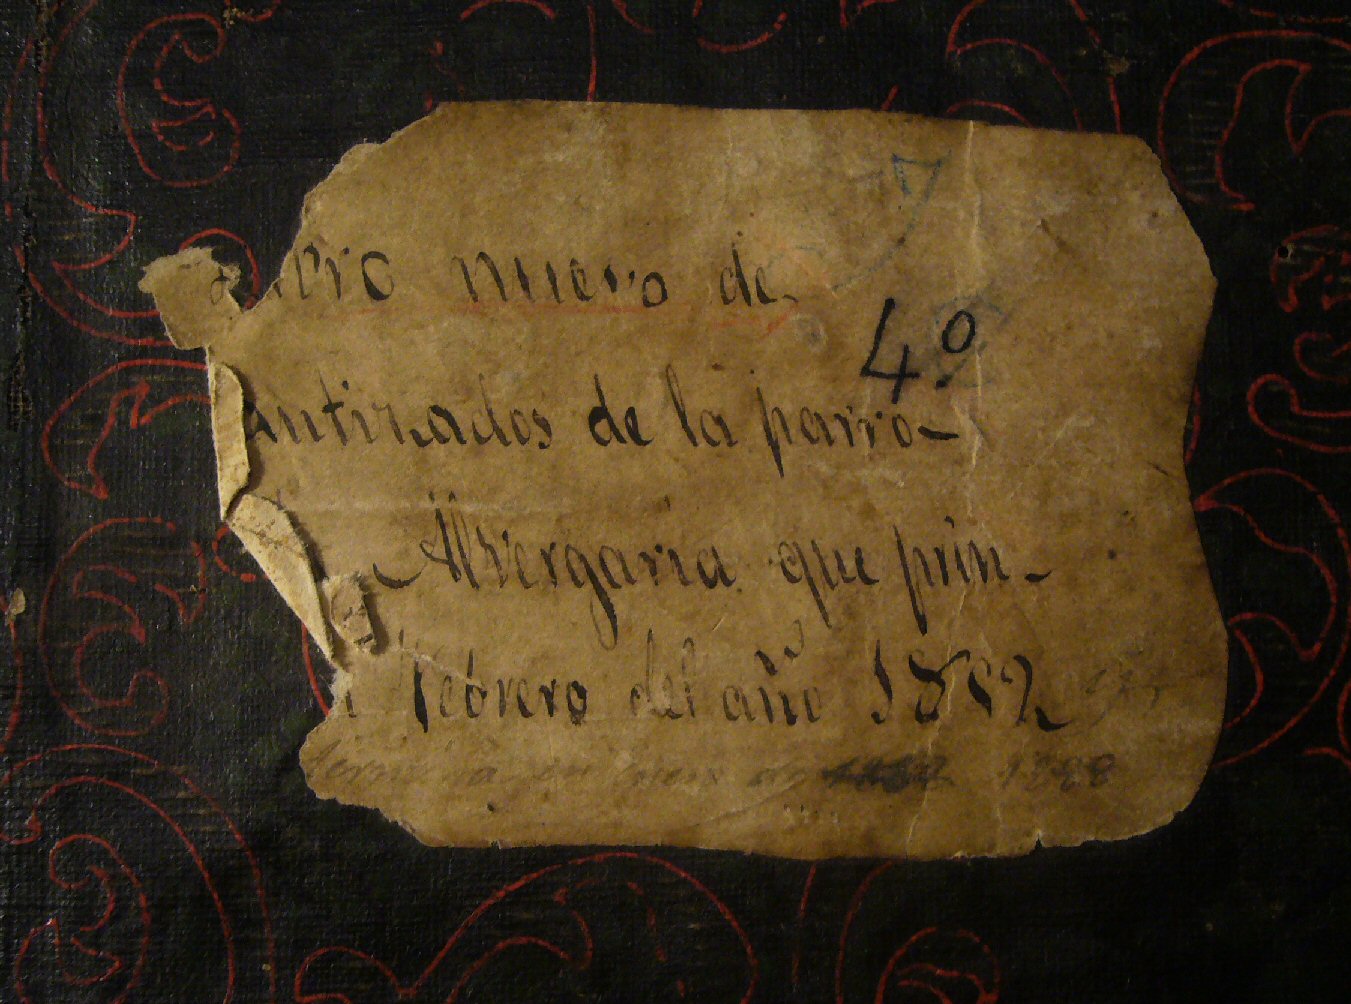 nuevo de
4º
autizados de la parro-
Alvergaria que prin-
Febrero del año 1882
en de 1888